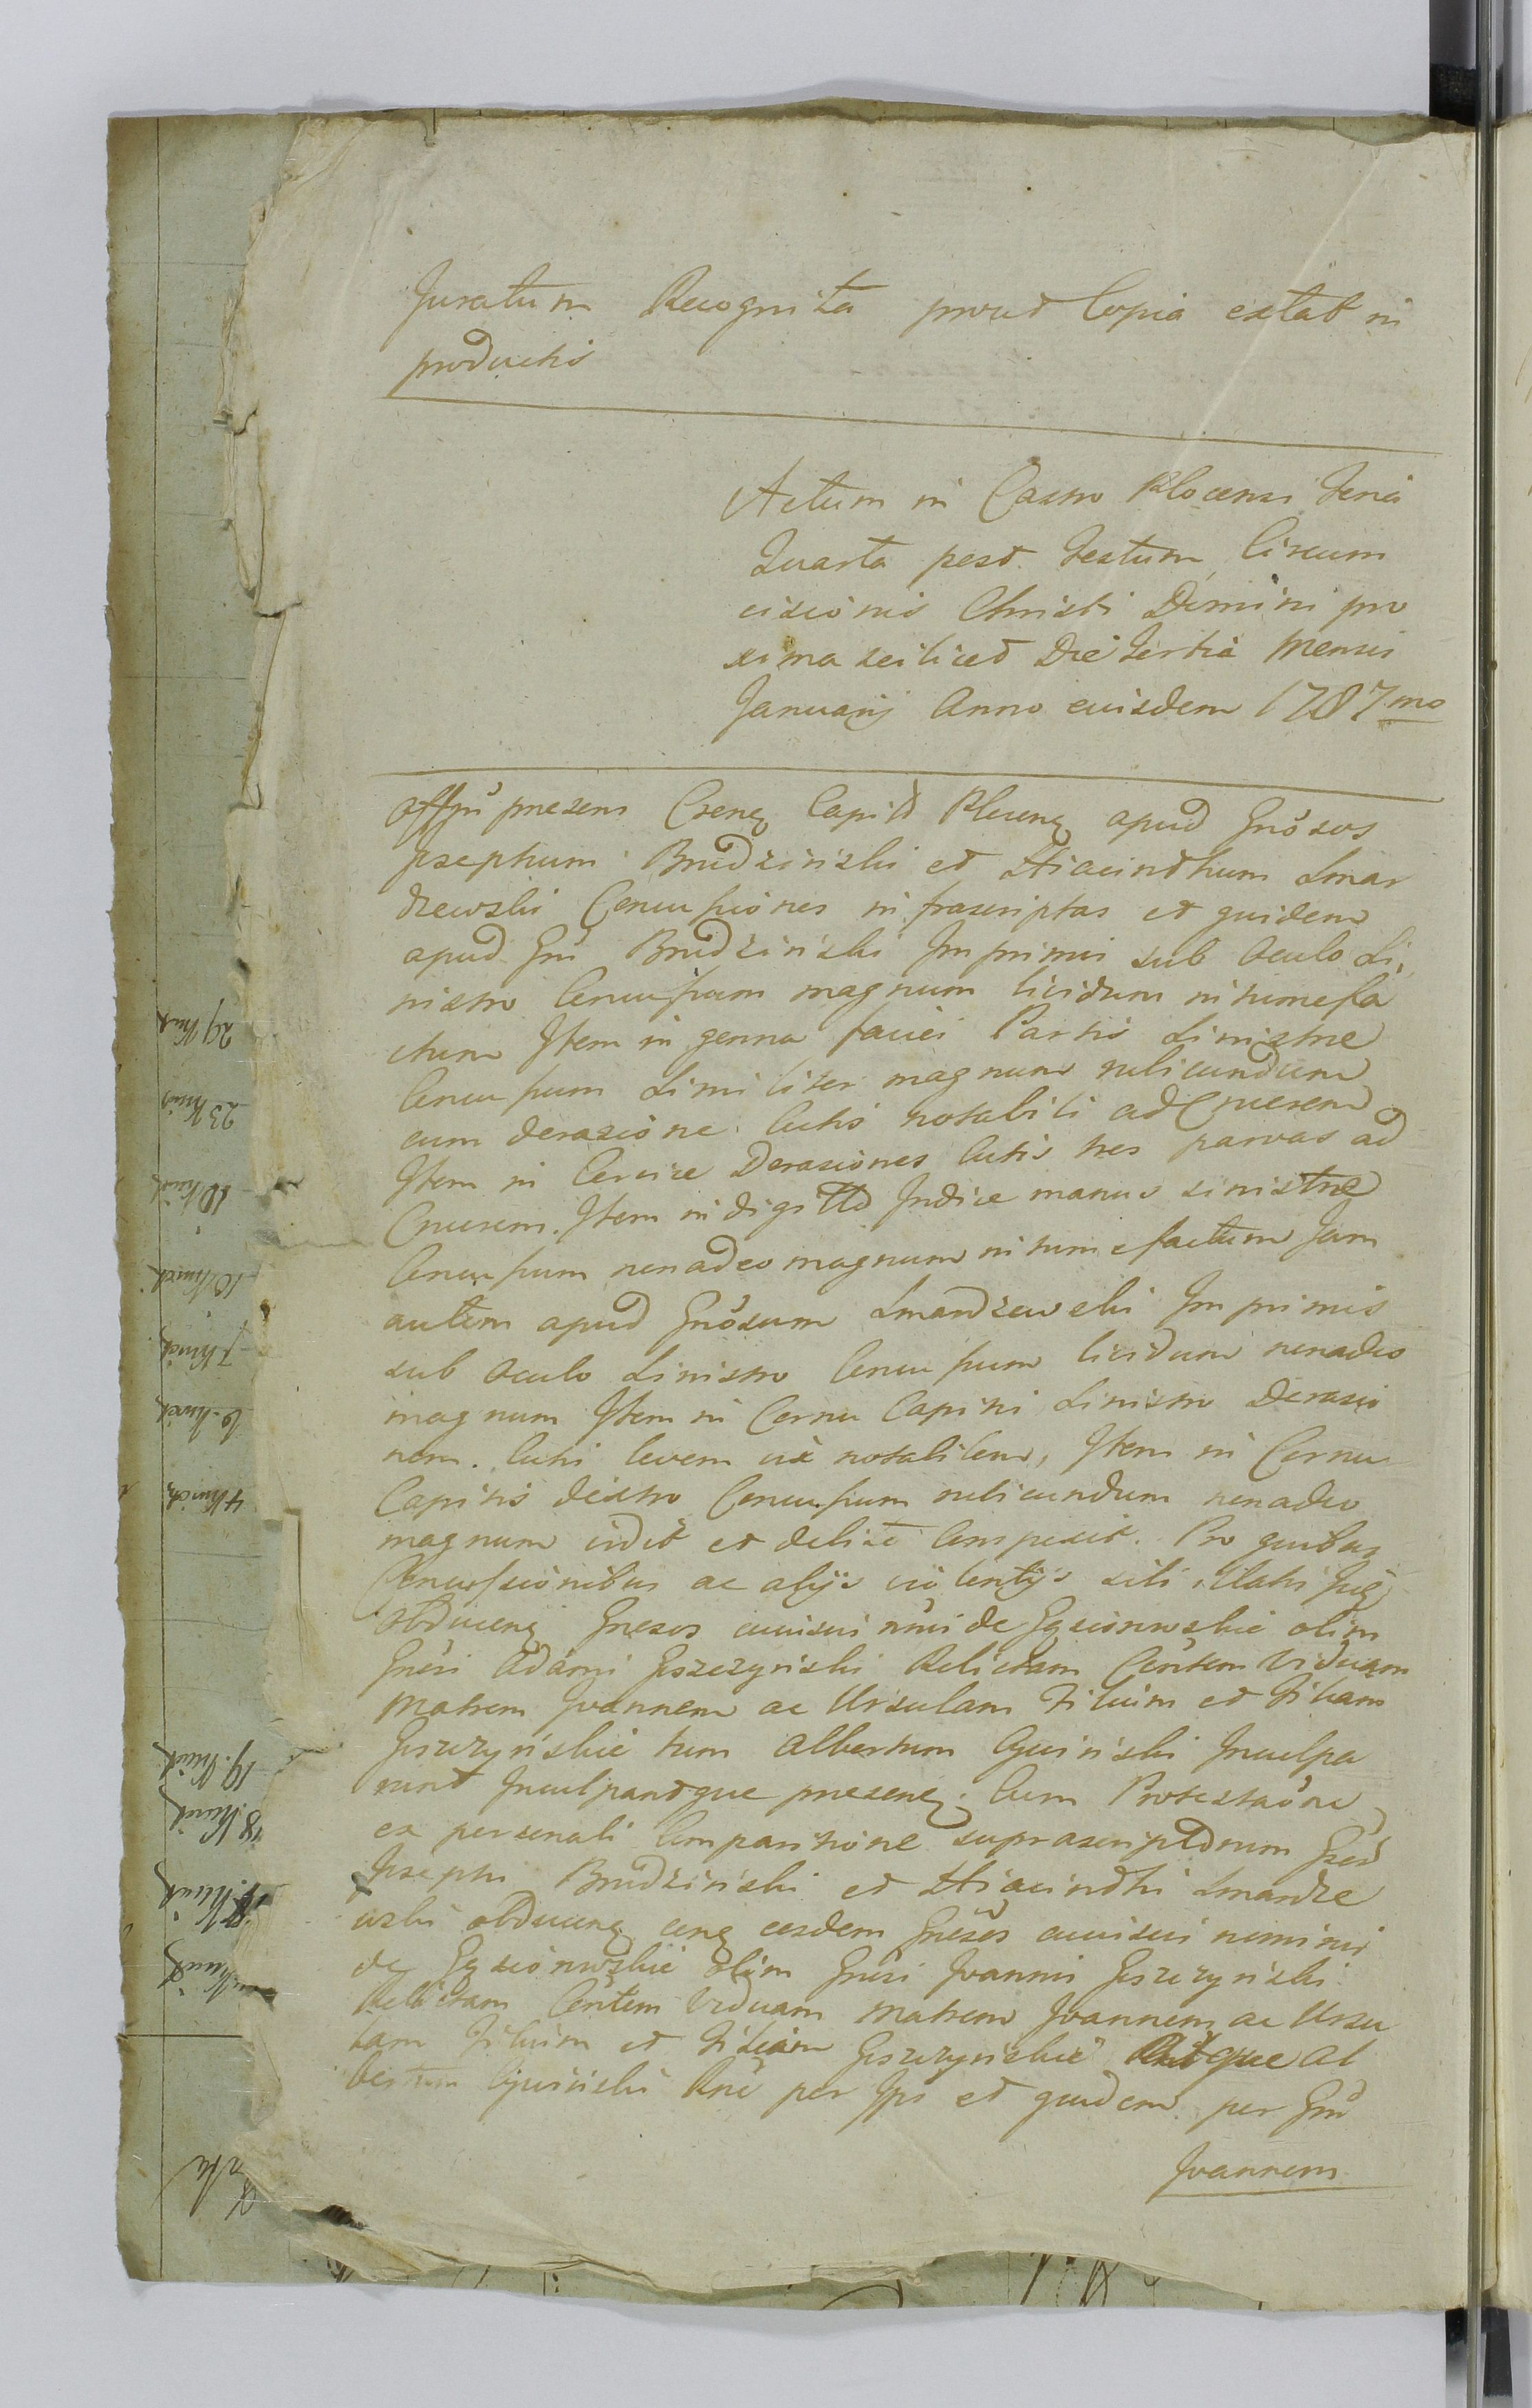 Juratum Recognita prout Copia extat in
productis
Actum in Castro Plocensi Feria
Quarta post Festum Circum
cisionis Christi Domini pro
xima scilicet Die Tertia Mensis
Januarij Anno eiusdem 1787mo
Offm presens Crenę Capitl Plucenę apud Gnosos
Josephum Brudzinski et Hiacinthum Smar
dzewski Concussiones infrascriptas et quidem
apud Gm Brudzinski Imprimis sub Oculo Si,
nistro Concussum magnum lividum intumefa
ctum Item in genna faciei Partis Sinistre
Concussum Similiter magnum rubicundum
cum derasione Cutis notabili ad Cruorem
Item in Cervice Derasiones Cutis tres parvas ad
Cruorem. Item in digitto Indice manus sinistre
Concussum nonadeo magnum intumefactum Jam
autem apud Gnosum Smardzewski Imprimis
sub Oculo Sinistro Concussum lividum nonadeo
magnum Item in Cornu Capitis Sinistro Derasio
nem Cutis levem vix notabilem, Item in Cornu
Capitis dextro Concussum rubicundum nonadeo
magnum vidit et conspexit. Pro quibus
Concussionibus ac alijs violentijs sibi illatis
obducenę Gnesos cuiusvis nnis de Gąsiorowskie olim
Gnesi Adami Jeszczyński Relictam Viduam
Matrem Joannem ac Ursulam Filium et Filiam
Jeszczyńskie tum Albertum Inculpa
runt Inculpantque presenę. Cum Protestaone
ex personali Comparitione suprascriptorum
Josephi Brudzinski et Hiacindthi Smardze
wski obducenę eosdem Gnesos cuiusvis nominis
de Gąsiorowskie olim Gnesi Joannis Jeszczyński
Relictam Viduam Matrem Joannem ac Ursu
lam Filium et Filiam Jeszczyńskie que Al
bertum per Ips et quidem per Gm
Joannem